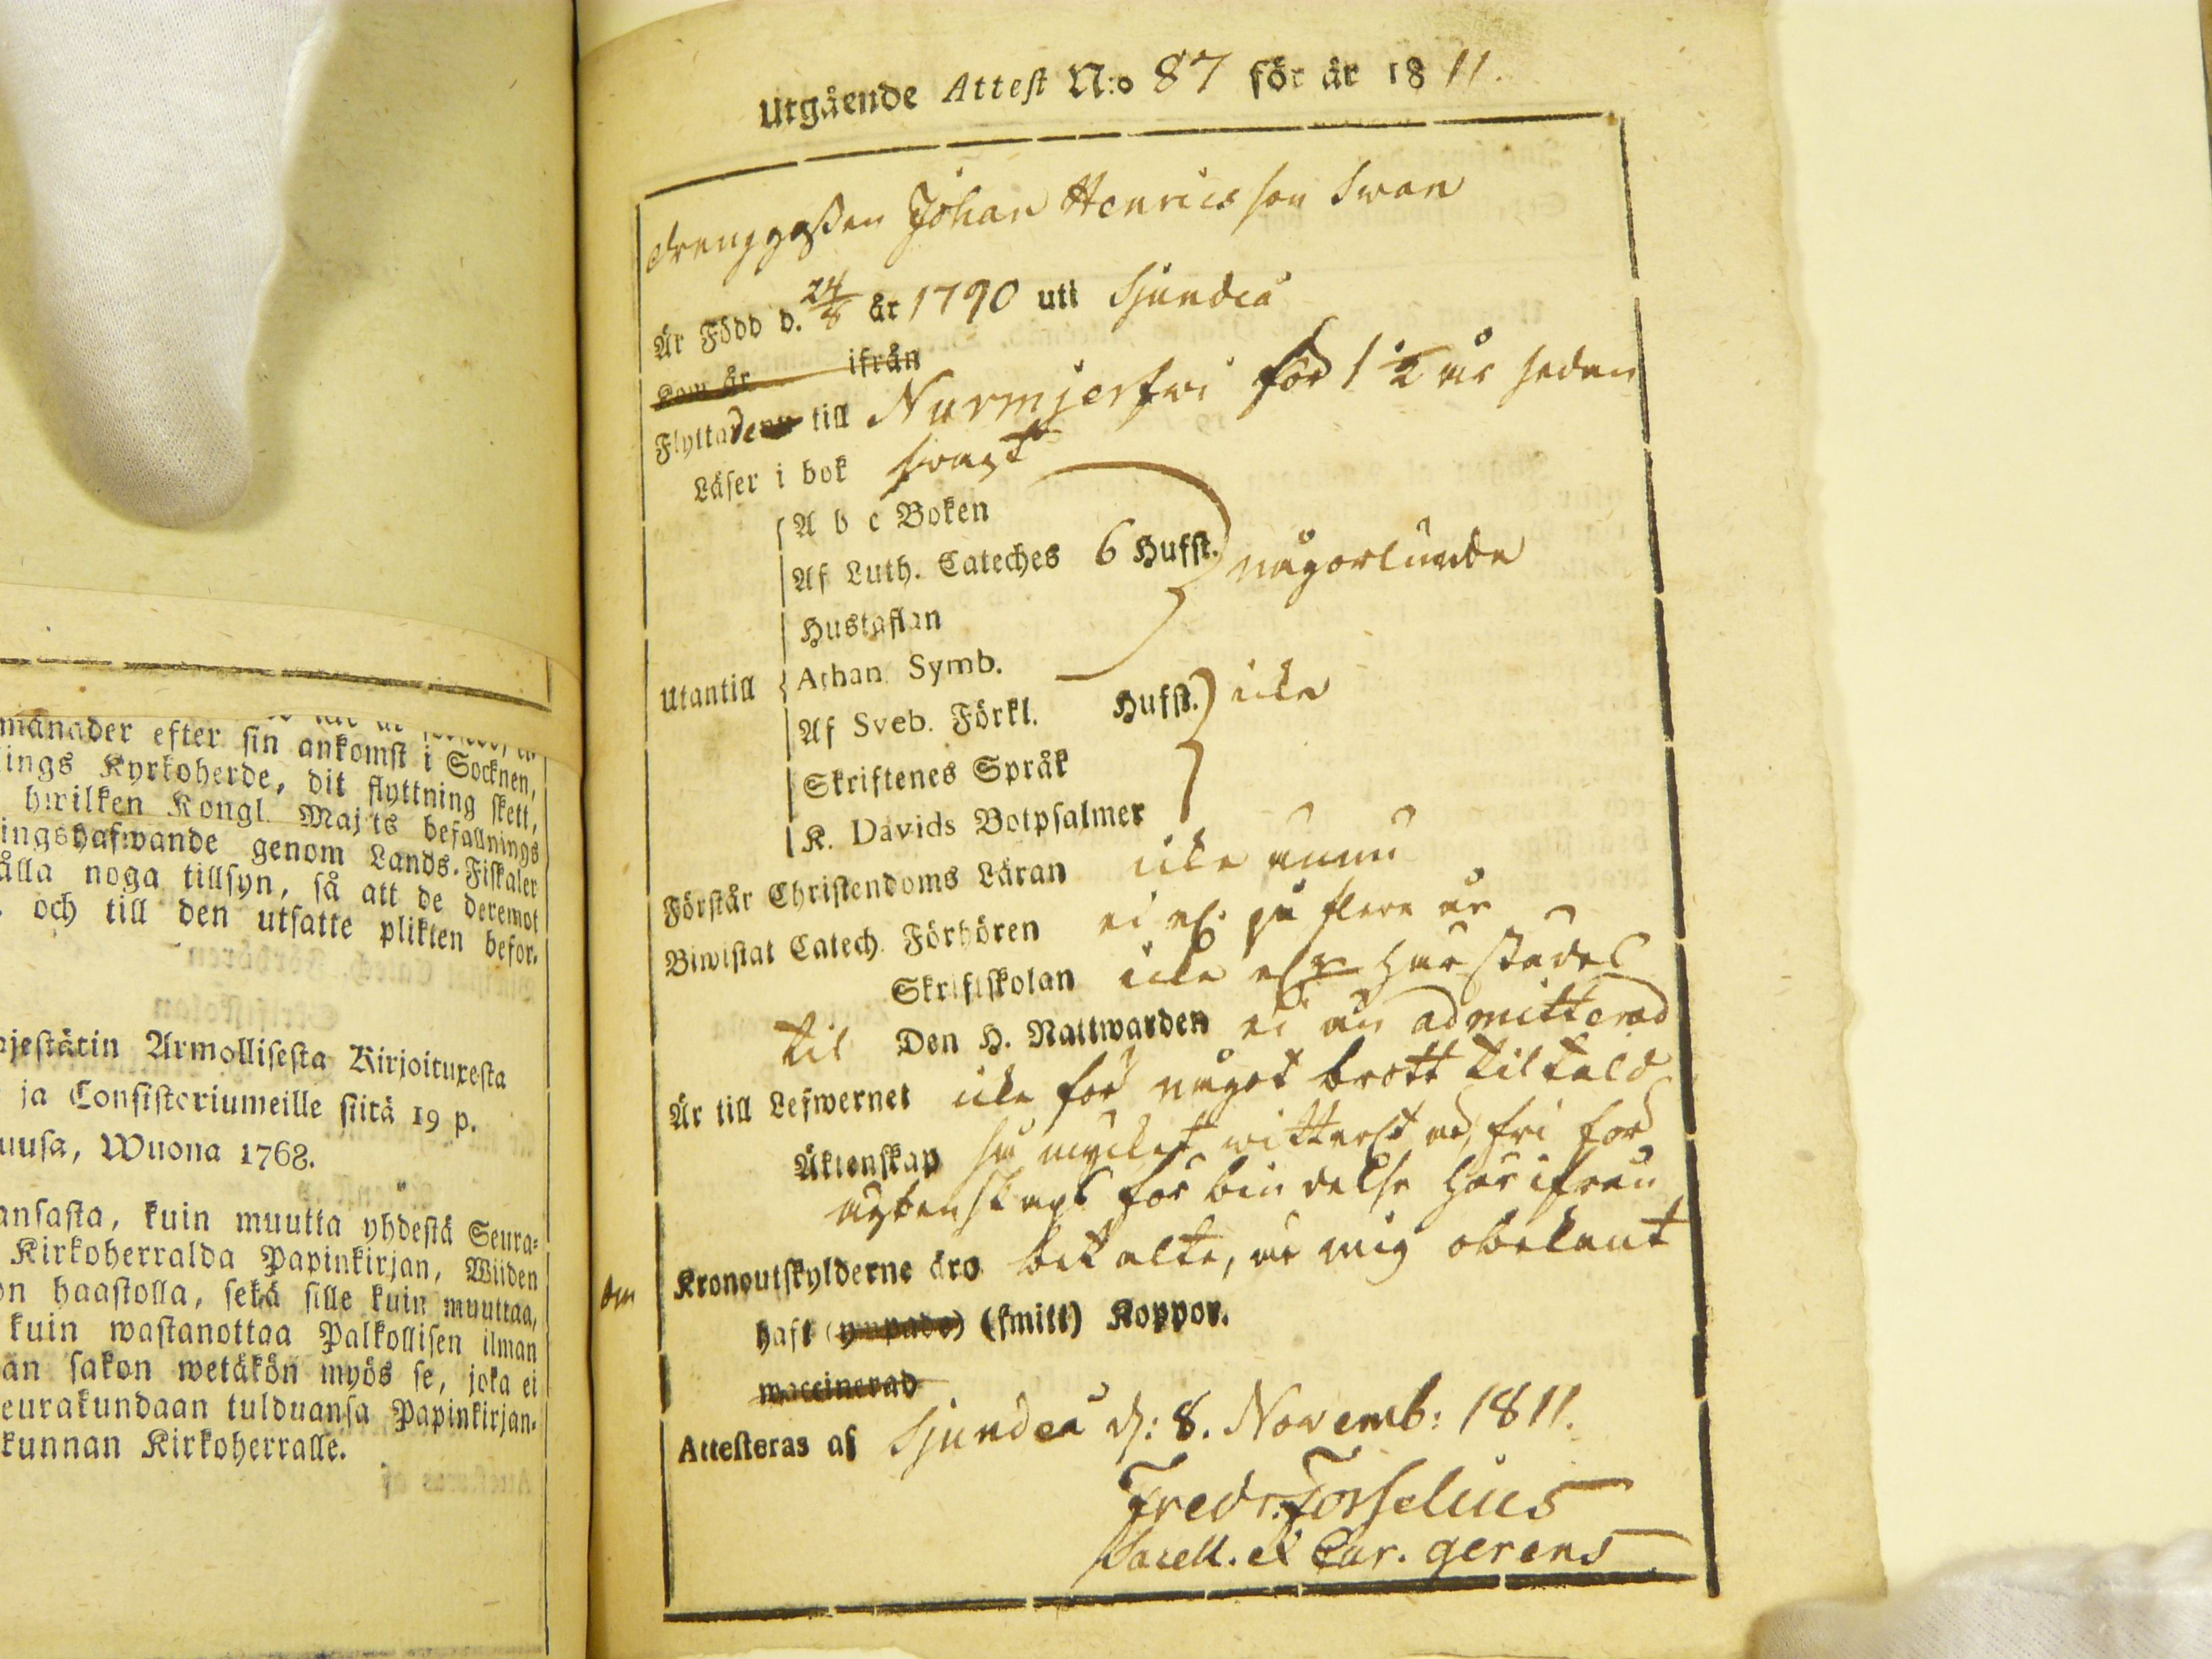 månader efter sin ankomst i Socknen,
ings Kyrkoherde, dit flyttning skett,
hwilken Kongl. Maj:ts befallnings
ingshafwande genom Lands-Fiskaler
ålla noga tillsyn, så att de deremot
och till den utsatte plikten befor-
ajestätin Armollisesta Kirjoituxesta
ja Consistoriumeille siitä 19 p.
uusa, Wuona 1768.
ansasta, kuin muutta yhdestä Seura-
Kirkoherralda Papinkirjan, Wiiden
on haastolla, sekä sille kuin muuttaa,
kuin wastanottaa Palkollisen ilman
än sakon wetäkön myös se, joka ei
eurakundaan tulduansa Papinkirjan-
kunnan Kirkoherralle.
Utgående Attest N:o 87 för år 1811.
Drenggossen Johan Henricsson Swan
Är Född d. 24/8 år 1790 uti Sjundeå
Kom år ifrån
Flyttade till Nurmjerfwi för 1 1/2 år sedan
Läser i bok swagt
A b c Boken
Af Luth. Cateches 6 Hufst. någorlunda
Hustaflan
Utantill Athan. Symb.
Af Sveb. Förkl. Hufst. icke
Skriftenes Språk
K. Davids Botpsalmer
Förstår Christendoms Läran icke ännu
Biwistat Catech. Förhören ei på flere år
Skriftskolan icke härstädes
til Den H. Nattwarden ei än admitterad
Är till Lefwernet icke för något brott tiltald
Äktenskap så mycket witterligt är, fri för
ägtenskaps förbindelse härifrån
Kronoutskylderne äro betalte, är mig obekant
om haft (smitt) Koppor.
waccinerad
Attesteras af Sjundeå d: 8. Novemb: 1811.
Fredr. Forselius
Sacell. et Cur. gerens